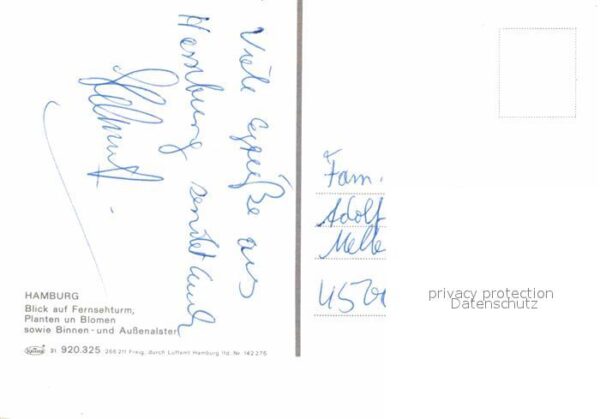 Viele Grüße aus
Hamburg sendet Euch
Helmut.
Fam.
Adolf
Melle
4520
privacy protection
Datenschutz
HAMBURG
Blick auf Fernsehturm,
Planten un Blomen
sowie Binnen- und Außenalster
31 920.325 266 211 Freig. durch Luftamt Hamburg lfd. Nr. 142 276